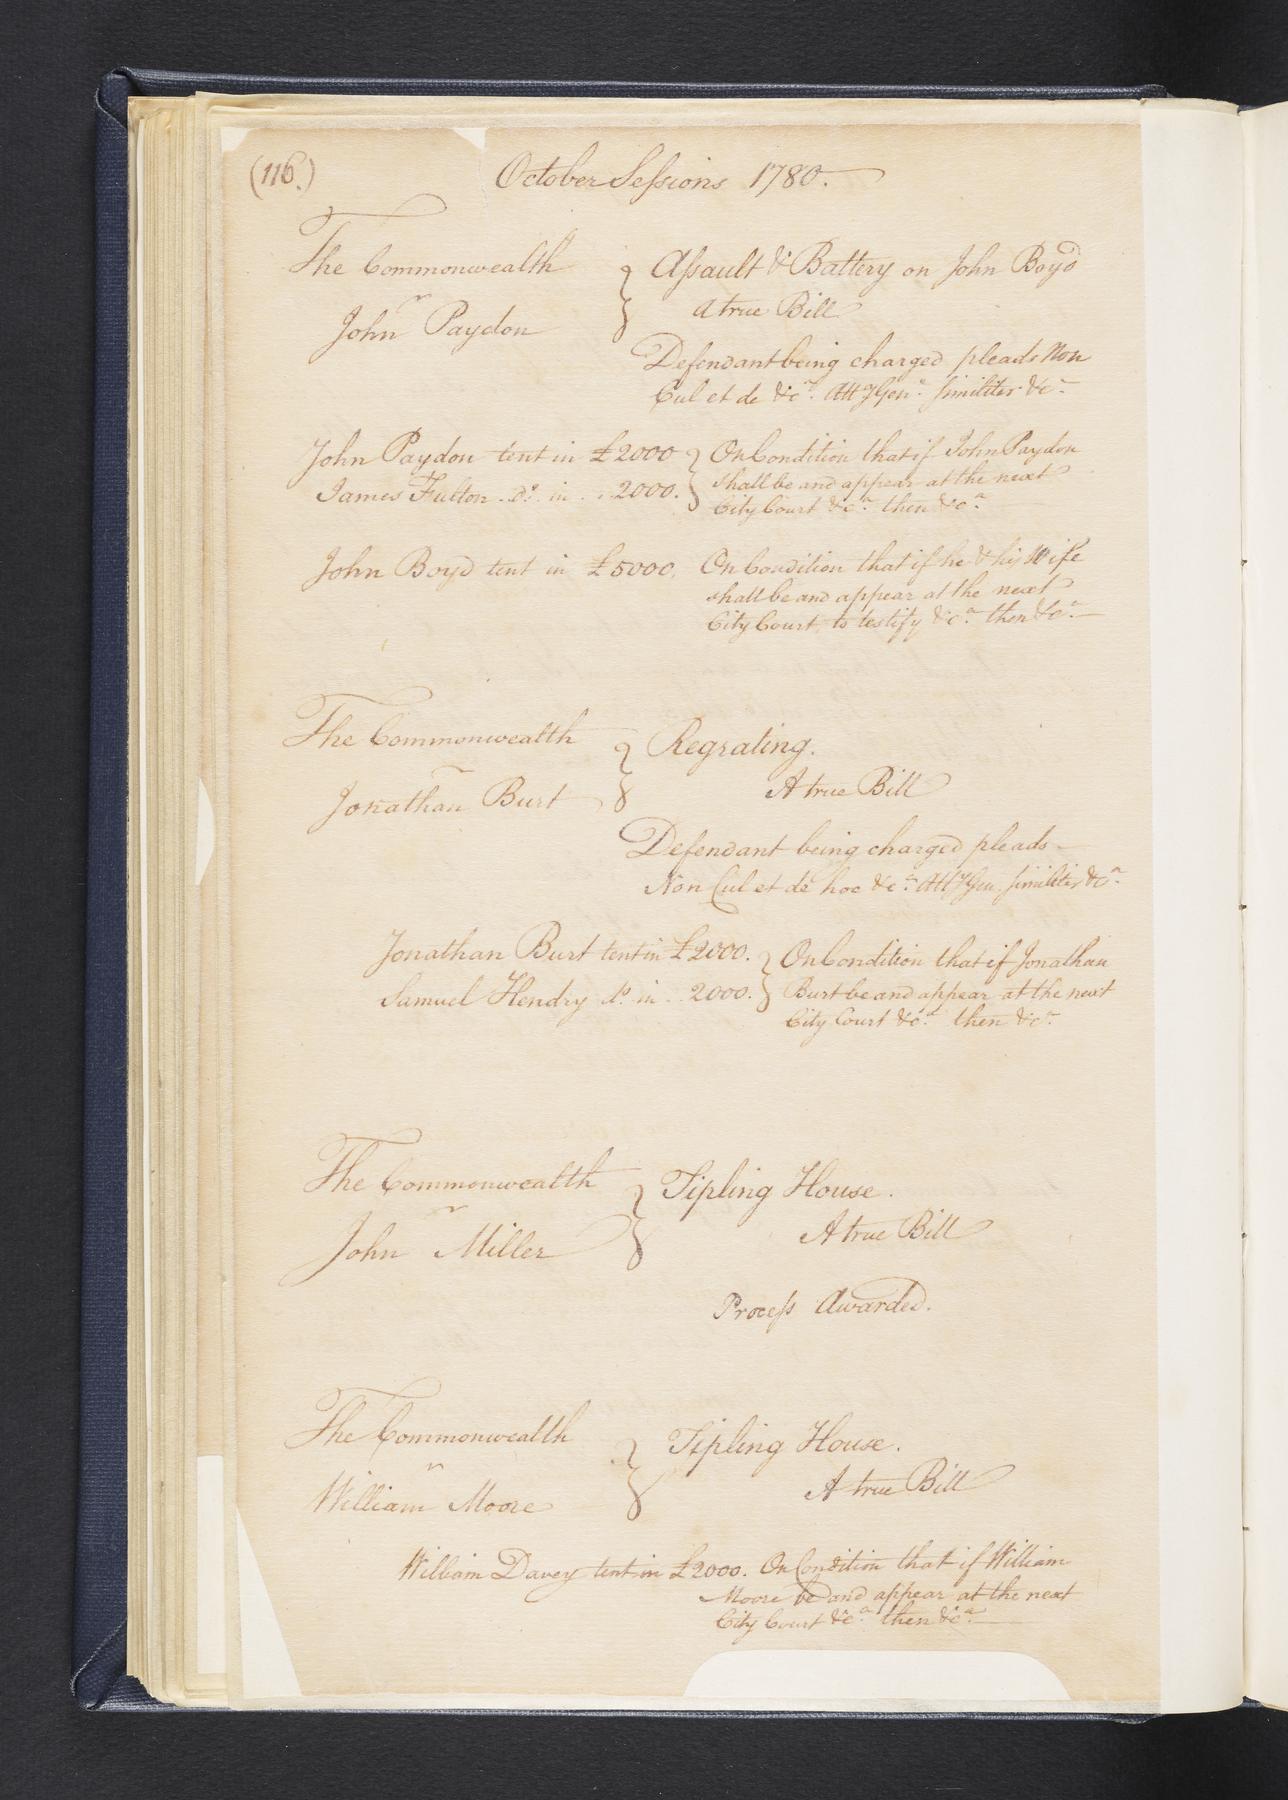 (116.)
October Sessions 1780.
The Commonwealth
v
John Paydon
Assault & Battery on John Boyd
A true Bill
Defendant being charged pleads Non
Cul et de &ca. Atty Genl. similiter &ca
John Paydon tent in £2000
James Fulton do. in 2000.
On Condition that if John Paydon
shall be and appear at the next
City Court &ca. then &ca.
John Boyd tent in £5000.
On Condition that if he & his Wife
shall be and appear at the next
City Court to testify &ca. then &ca.
The Commonwealth
v
Jonathan Burt
Regrating.
A true Bill
Defendant being charged pleads
Non Cul et de hoc &ca. Atty Gen. similiter &ca.
Jonathan Burt tent in £2000.
Samuel Hendry do. in 2000.
On Condition that if Jonathan
Burt be and appear at the next
City Court &ca. then &ca.
The Commonwealth
v
John Miller
Tipling House.
A true Bill
Process Awarded.
The Commonwealth
v
William Moore
Tipling House.
A true Bill
William Davey tent in £2000. On Condition that if William
Moore be and appear at the next
City Court &ca. then &ca.